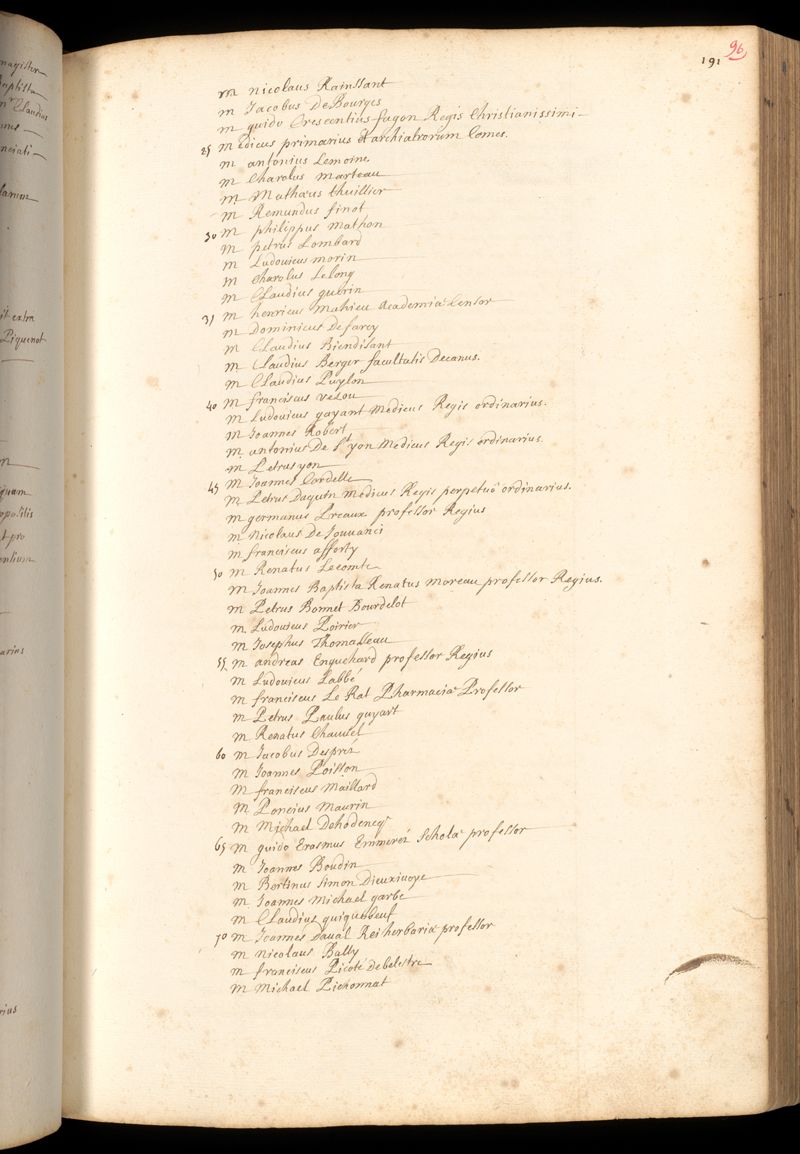 96
191
m nicolaus Rainssant
m Jacobus DeBourges
m guido Crescentius fagon Regis Christianissimi
25 medicus primarius et archiatrorum Comes.
m antonius Lemoine
m Charolus marteau
m Mathæus thuillier
m Remundus finot
30 m philippus mathon
m petrus Lombard
m Ludovicus morin
m Charolus Lelong
m Claudius guerin
35 m henricus mahieu academiæ Censor
m Dominicus Defarcy
m Claudius Biendisant
m Claudius Berger facultatis Decanus.
m Claudius Puylon
40 m franciscus vezou
m Ludovicus gayant medicus Regis ordinarius.
m Joannes Robert
m antonius De St yon Medicus Regis ordinarius.
m Petrus yon
45 m Joannes Cordelle
m Petrus Daquin medicus Regis perpetuò ordinarius.
m germanus Preaux professor Regius
m Nicolaus De Jouvanci
m franciscus afforty
50 m Renatus Lecomte
m Joannes Baptista Renatus moreau professor Regius.
m Petrus Bonnet Bourdelot
m Ludovicus Poirier
m Josephus Thomasseau
55 m andreas Enguehard professor Regius
m Ludovicus Labbé
m franciscus Le Rat Pharmaciæ Professor
m Petrus Paulus guyart
m Renatus Chauvel
60 m Jacobus Desprez
m Joannes Poisson
m franciscus Maillard
m Poncius Maurin
m Michael Dehodencq
65 m guido Erasmus Emmerez Scholæ professor
m Joannes Boudin
m Bertinus simon Dieuxivoye
m Joannes Michael garbe
m Claudius quiquebeuf
70 m Joannes Daval Rei herbariæ professor
m nicolaus Bailly
m franciscus Picoté Debelestre
m Michael Pichonnat